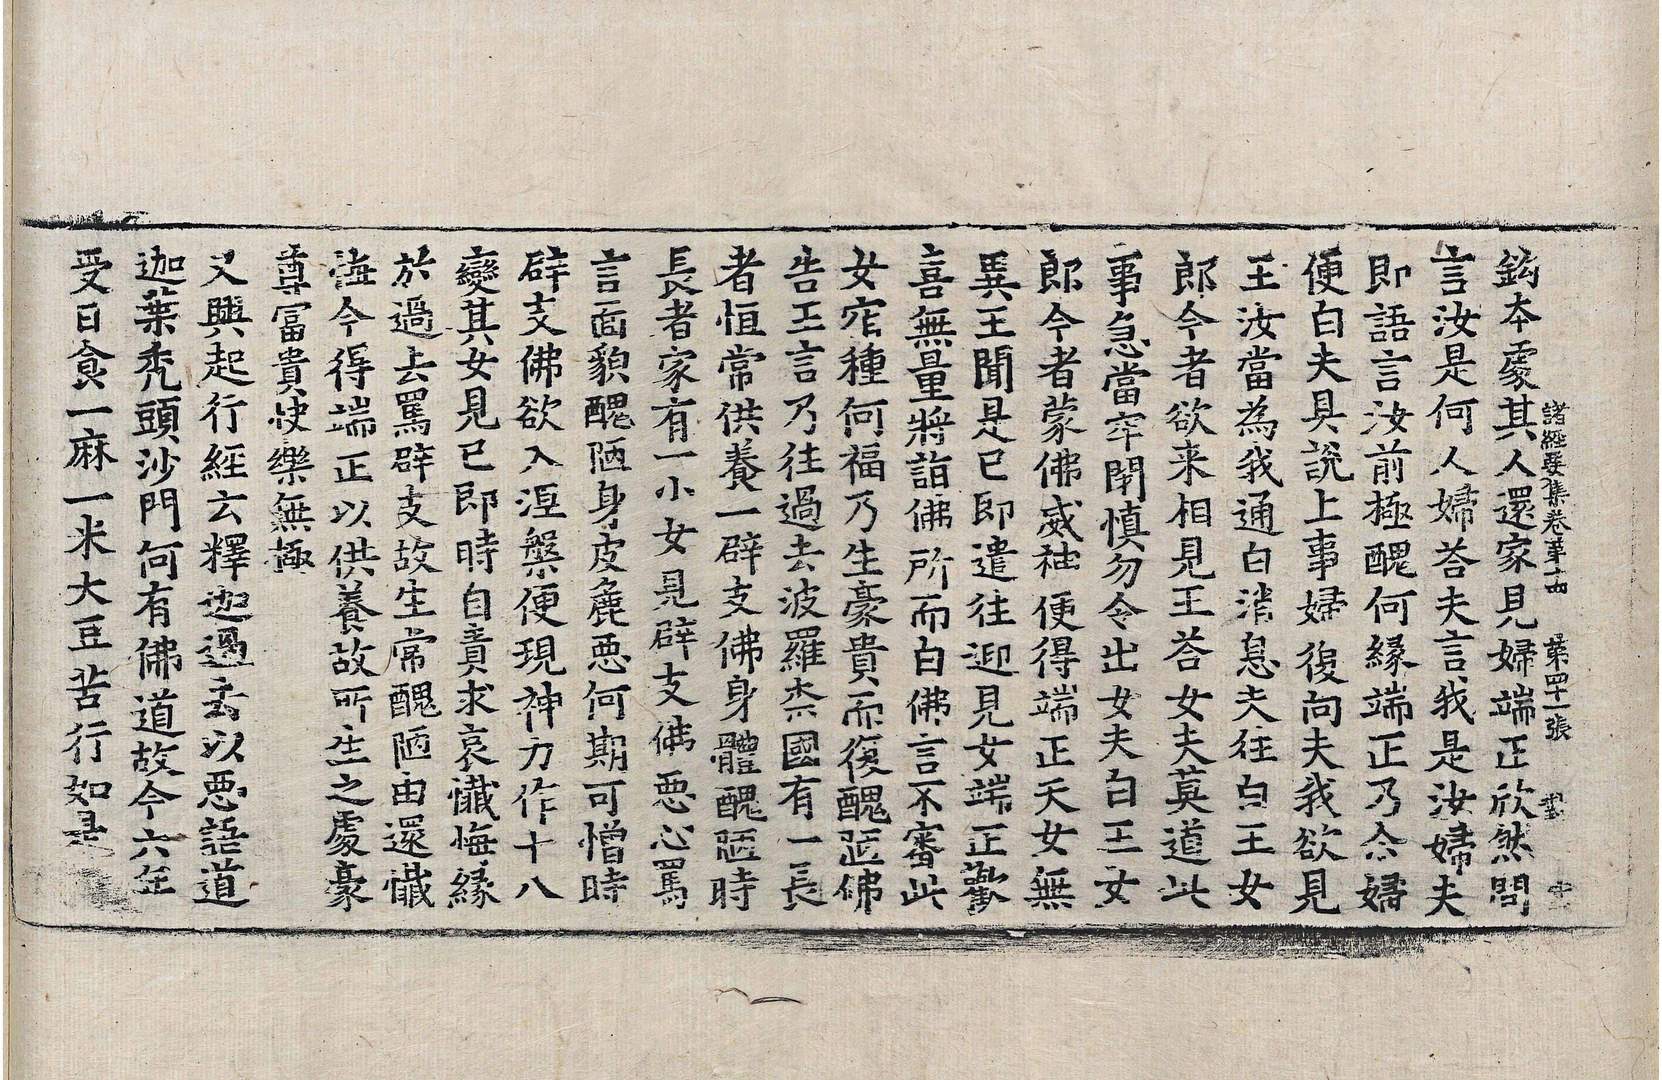 鈎本處其人還家見婦端正欣然問
諸經要集卷第十四 第四十一張
言汝是何人婦荅夫言我是汝婦夫
即語言汝前極醜何緣端正乃尒婦
便白夫具說上事婦復向夫我欲見
王汝當為我通白消息夫往白王女
郎今者欲来相見王荅女夫莫道此
事急當牢閇慎勿令出女夫白王女
郎今者蒙佛威神便得端正天女無
異王聞是已即遣往迎見女端正歡
喜無量將詣佛所而白佛言不審此
女宿種何福乃生豪貴而復醜陋佛
告王言乃往過去波羅柰國有一長
者恒常供養一辟支佛身體醜陋時
長者家有一小女見辟支佛惡心罵
言面貌醜陋身皮麁惡何期可憎時
辟支佛欲入涅槃便現神力作十八
變其女見已即時自責求哀懺悔緣
於過去罵辟支故生常醜陋由還懺
悔今得端正以供養故所生之處豪
尊冨貴快樂無極
又興起行經云釋迦過去以惡語道
迦葉禿頭沙門何有佛道故今六年
受日食一麻一米大豆苦行如是